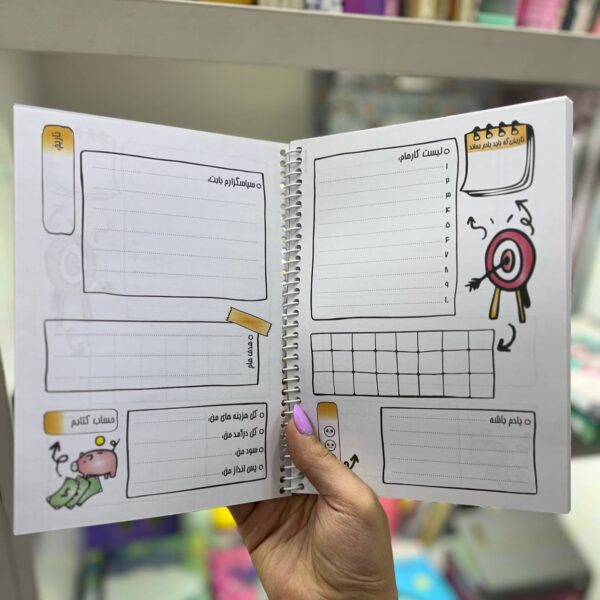 تاریخی که باید یادم بماند
لیست کارهام:
۱
۲
۳
۴
۵
۶
۷
۸
۹
۱۰
یادم باشه
تاریخ:
سپاسگزارم بابت:
هدف هام
حساب کتابم
کل هزینه های من:
کل درآمد من:
سود من:
پس انداز من: